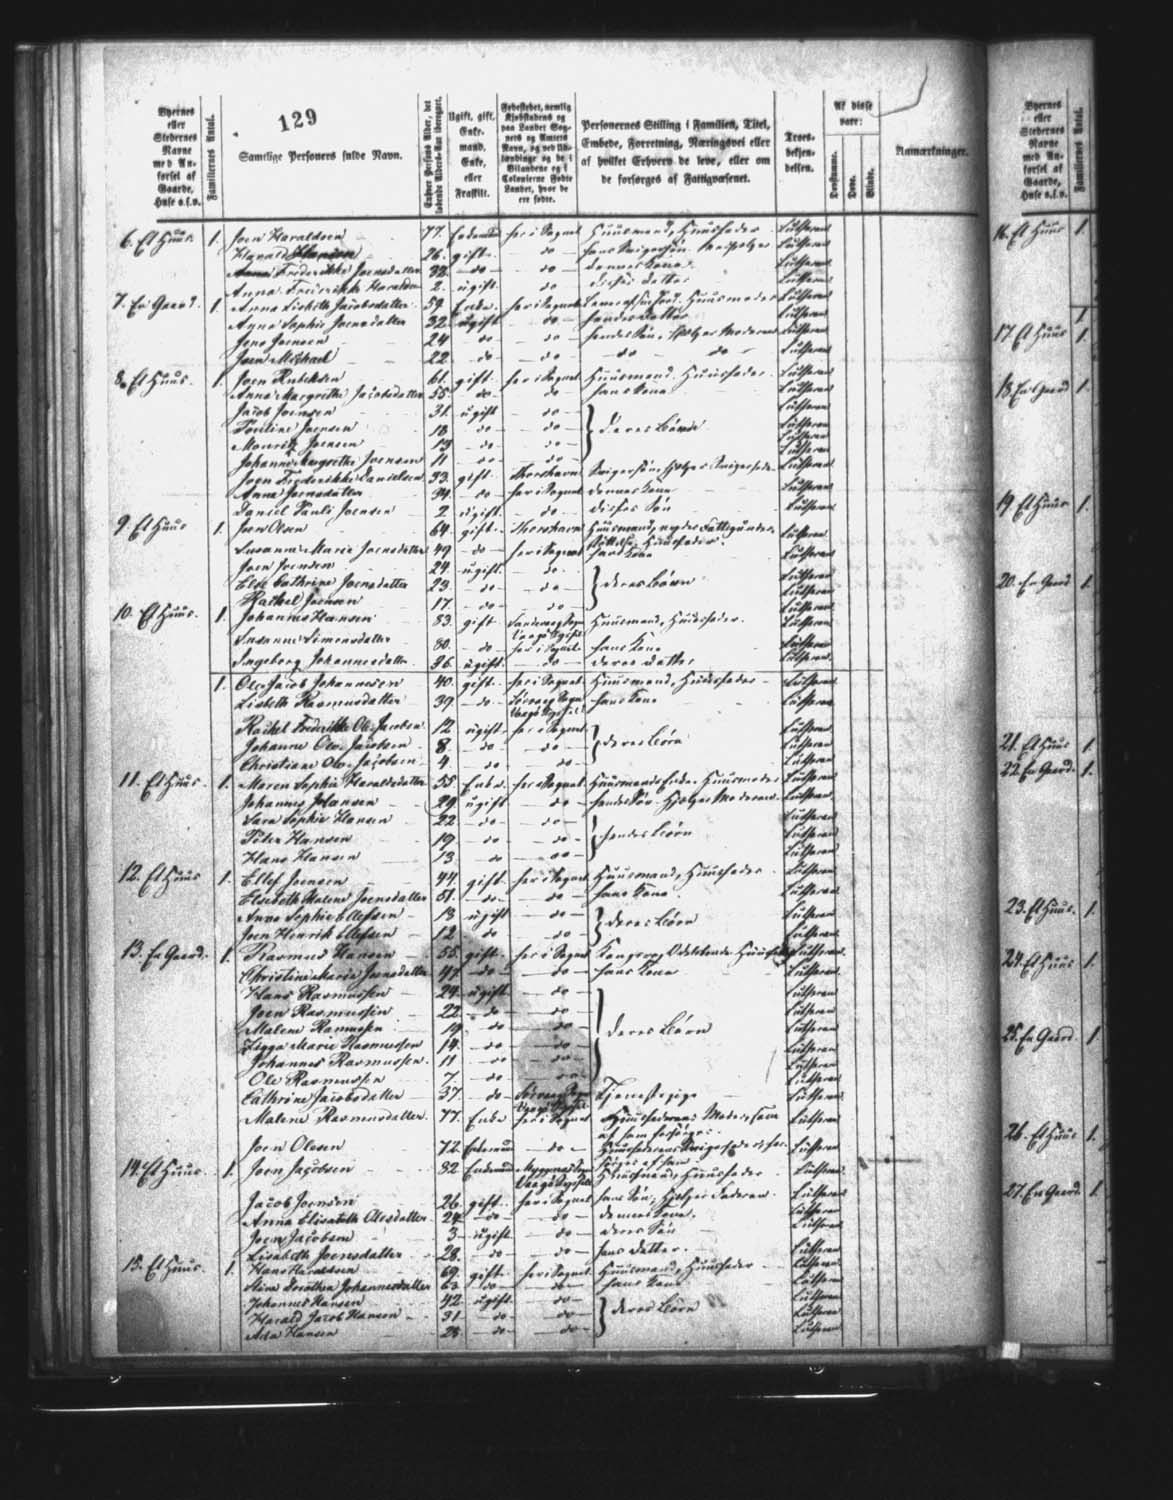 129
Byernes eller Stedernes Navne med Anførsel af Gaarde, Huse o.s.v.
Familiernes Antal.
Samtlige Personers fulde Navn.
Enhver Persons Alder, det løbende Alders-Aar iberegnet.
Ugift, gift, Enkemand, Enke, eller Fraskilt.
Personernes Stilling i Familien, Titel, Embede, Forretning, Næringsvei eller af hvilket Erhverv de leve, eller om de forsørges af Fattigvæsenet.
Troesbekjendelsen.
Af disse vare:
Døvstumme.
Døve.
Blinde.
Anmærkninger.
6. Et Huus 1. Joen Haraldsen 77. Enkemand her i Sognet Huusmand, Huusfader Lutheran
Harald Hansen 26. gift do Lutheran
Frederikke Joensdatter 32. do do deres Kone Lutheran
Anna Frederikke Haralds 2. ugift do disses Datter Lutheran
7. En Gaard. 1. Anna Lisbeth Jacobsdatter 59. Enke her i Sognet Huusmoder Lutheran
Anna Sophie Joensdatter 32 ugift do hendes Datter Lutheran
Jens Joensen 24 do do hendes Søn, hjælper Moderen Lutheran
Joen Michael 22. do do do do Lutheran
8. Et Huus. 1. Joen Rubeksen 61. gift her i Sognet Huusmand, Huusfader Lutheran
Anna Margrethe Jacobsdatter 55. do do hans Kone Lutheran
Jacob Joensen 31. ugift do Lutheran
Pouline Joensen 18 do do deres Børn Lutheran
Mouritz Joensen 13 do do Lutheran
Johanne Margrethe Joensen 11 do do Lutheran
Joen Frederikke Danielsen 33. gift Thorshavn Lutheran
Anna Joensdatter 34. do her i Sognet dennes Kone Lutheran
Daniel Pauli Joensen 2 ugift do disses Søn Lutheran
9. Et Huus 1. Joen Olsen 64. gift Thorshavn Huusmand, nyder Fattigunder-
støttelse, Huusfader. Lutheran
Susanne Marie Joensdatter 49 do her i Sognet hans Kone Lutheran
Joen Joensen 24. ugift do Lutheran
Else Cathrine Joensdatter 23 do do deres Børn Lutheran
Rachel Joensen 17. do do Lutheran
10. Et Huus. 1. Johannes Hansen 83. gift Sandevaag Sogn
Vaagø Syssel Huusmand, Huusfader. Lutheran
Susanne Simonsdatter 80. do her i Sognet hans Kone Lutheran
Ingeborg Johannesdatter 36. ugift do deres Datter Lutheran
1. Ole Jacob Johannesen 40. gift her i Sognet Huusmand, Huusfader Lutheran
Lisbeth Rasmusdatter 39 do Sørvaag Sogn
Vaagø Syssel hans Kone Lutheran
Rachel Frederikke Ole Jacobsen 12 ugift her i Sognet Lutheran
Johanne Ole Jacobsen 8. do do deres Børn Lutheran
Christiane Ole Jacobsen 4. do do Lutheran
11. Et Huus. 1. Maren Sophie Haraldsdatter 55 Enke her i Sognet Huusmands Enke, Huusmoder Lutheran
Johannes Johansen 29 ugift do hendes Søn, hjælper Moderen Lutheran
Sara Sophie Hansen 22 do do Lutheran
Peter Hansen 19 do do hendes Børn Lutheran
Hans Hansen 13 do do Lutheran
12. Et Huus 1. Ellef Joensen 44 gift her i Sognet Huusmand, Huusfader Lutheran
Elsebeth Malene Joensdatter 51. do do hans Kone Lutheran
Anna Sophie Ellefsen 13 ugift do deres Børn Lutheran
Joen Henrik Ellefsen 12 do do Lutheran
13. En Gaard. 1. Rasmus Hansen 55. gift her i Sognet Lutheran
Christine Marie Joensdatter 47. do do hans Kone Lutheran
Hans Rasmussen 24. ugift do Lutheran
Joen Rasmussen 22 do do Lutheran
Malene Rasmussen 19 do do deres Børn Lutheran
Sigga Marie Rasmussen 14. do do Lutheran
Johannes Rasmussen 11 do do Lutheran
Ole Rasmussen 7. do do Lutheran
Cathrine Jacobsdatter 37. do Sørvaag Sogn
Vaagø Syssel Tjenestepige Lutheran
Malene Rasmusdatter. 77. Enke her i Sognet Huusfaderens Moder, som
af ham forsørges. Lutheran
Joen Olesen 72. Enkemand do Huusfaderens Svigerfader, for-
sørges af ham Lutheran
14. Et Huus 1. Joen Jacobsen 82 Enkemand Myggenæs Sogn
Vaagø Syssel Huusmand, Huusfader Lutheran
Jacob Joensen 26. gift her i Sognet hans Søn, hjælper Faderen Lutheran
Anna Elisabeth Olesdatter 24. do do dennes Kone. Lutheran
Joen Jacobsen 3 ugift do deres Søn Lutheran
Lisabeth Joensdatter 28. do do hans Datter. Lutheran
15. Et Huus. 1. Hans Haraldsen 69. gift her i Sognet Huusmand, Huusfader Lutheran
Stine Dorothea Johannesdatter 63 do do hans Kone Lutheran
Johannes Hansen 42 ugift do Lutheran
Harald Jacob Hansen 31 do do deres Børn Lutheran
Ada Hansen 28 do do Lutheran
Byernes eller Stedernes Navne med Anførsel af Gaarde, Huse o.s.v.
Familiernes Antal.
16. Et Huus 1.
1
17 Et Huus 1.
18. En Gaard 1.
19. Et Huus 1.
20. En Gaard 1.
21. Et Huus 1.
22. En Gaard. 1.
23. Et Huus. 1.
24. Et Huus 1.
25. En Gaard. 1
26. Et Huus 1.
27. En Gaard. 1